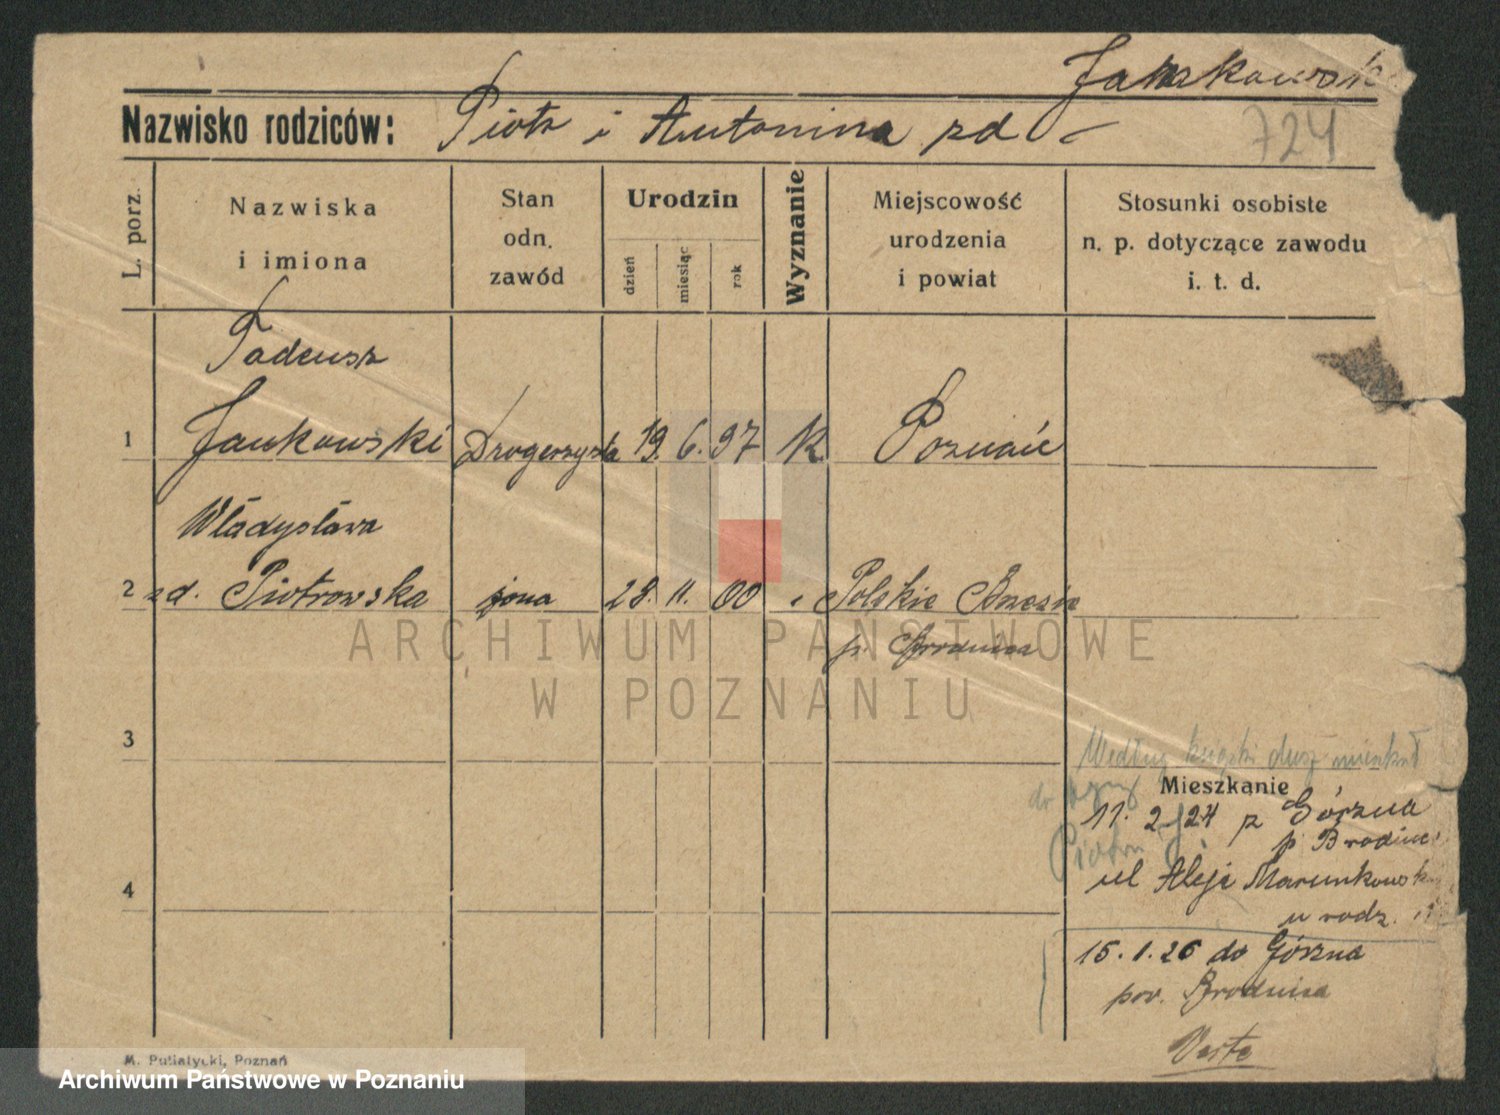 Jankowsk
Nazwisko rodziców: Piotr i Antonina zd –
724
L. porz.
Nazwiska
i imiona
Stan
odn.
zawód
Urodzin
dzień
miesiąc
rok
Wyznanie
Miejscowość
urodzenia
i powiat
Stosunki osobiste
n. p. dotyczące zawodu
i. t. d.
Tadeusz
1 Jankowski Drogerzysta 19. 6. 97 K Poznań
Władysława
2 zd. Piotrowska żona 28. 11. 00 " Polskie Brzozie
p. Brodnica
ARCHIWUM PAŃSTWOWE
W POZNANIU
3
Według książki dusz mieszkał
Mieszkanie
do
11. 2. 24 z Górzna
p. Brodnic
Piotr
ul Aleje Marcinkowsk
4
u rodz.
15. 1. 26 do Górzna
pow. Brodnica
Verte
M. Putiatycki, Poznań
Archiwum Państwowe w Poznaniu